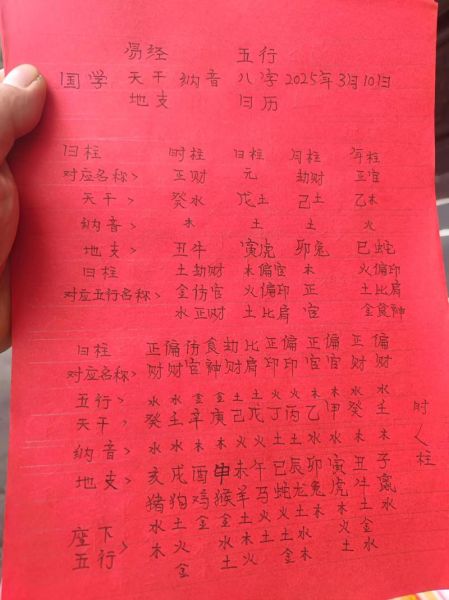 易经 五行
国学 天干 纳音 八字 2025年3月10日
地支 日历
日柱 时柱 日柱 月柱 年柱
对应名称> 正财 元 劫财 正官
天干> 癸水 戊土 己土 乙木
纳音> 木 土 土 火
地支> 丑牛 寅虎 卯兔 巳蛇
日柱 土劫财 木偏官 木 火偏印
对应五行名称> 金伤官 火偏印 正 土比肩
水正财 土比肩 官 金食神
日柱 正偏伤食劫比正偏正偏正偏
对应名称> 财财官神财肩印印官官财财
五行> 水水金金土土火火木木水水
天干> 癸壬辛庚己戊丁丙乙甲癸壬
时人柱
纳音> 水水木木火火土土水水木木
地支> 亥戌酉申未午巳辰卯寅丑子
猪狗鸡猴羊马蛇龙兔虎牛鼠
水土金金土火火土木木土水
座下五行> 木火 水木土土水 火金
金 土火 金木 土水